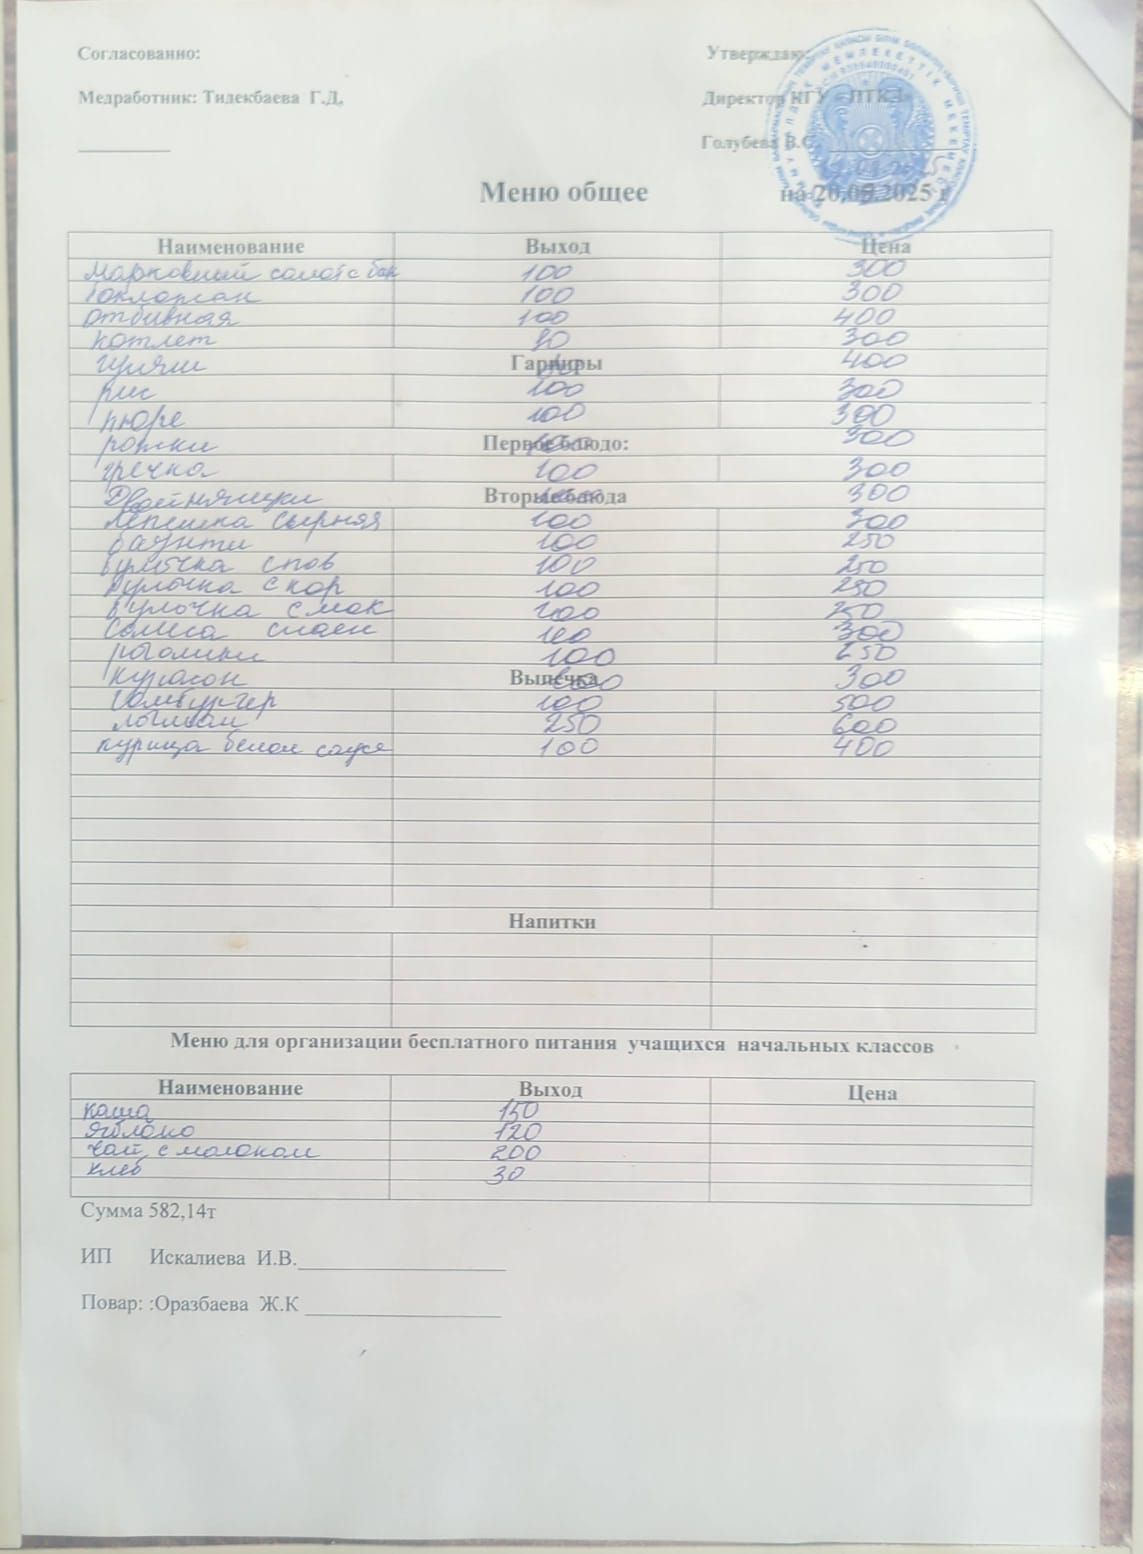 Согласованно: Утверждаю:
Медработник: Тилекбаева Г.Д. Директор КГУ «ПТКЛ»
Голубева В.С.
Меню общее на 20.05.2025 г
Наименование Выход Цена
Марковный солат с бак 100 300
баклажан 100 300
отбивная 100 400
котлет 80 300
Гарниры 400
рис 100 300
пюре 100 300
рожки Первое блюдо: 300
гречка 100 300
Двойняшки Вторые блюда 300
Лепешка сырная 100 300
баунти 100 250
булочка с пов 100 250
булочка с кор 100 250
булочка с мак 100 250
Самса слоен 100 300
рогалики 100 250
курасон Выпечка 300
гамбургер 100 500
лагман 250 600
курица белом соусе 100 400
Напитки
Меню для организации бесплатного питания учащихся начальных классов
Наименование Выход Цена
каша 150
яблоко 120
чай с молоком 200
хлеб 30
Сумма 582,14т
ИП Искалиева И.В.
Повар: :Оразбаева Ж.К